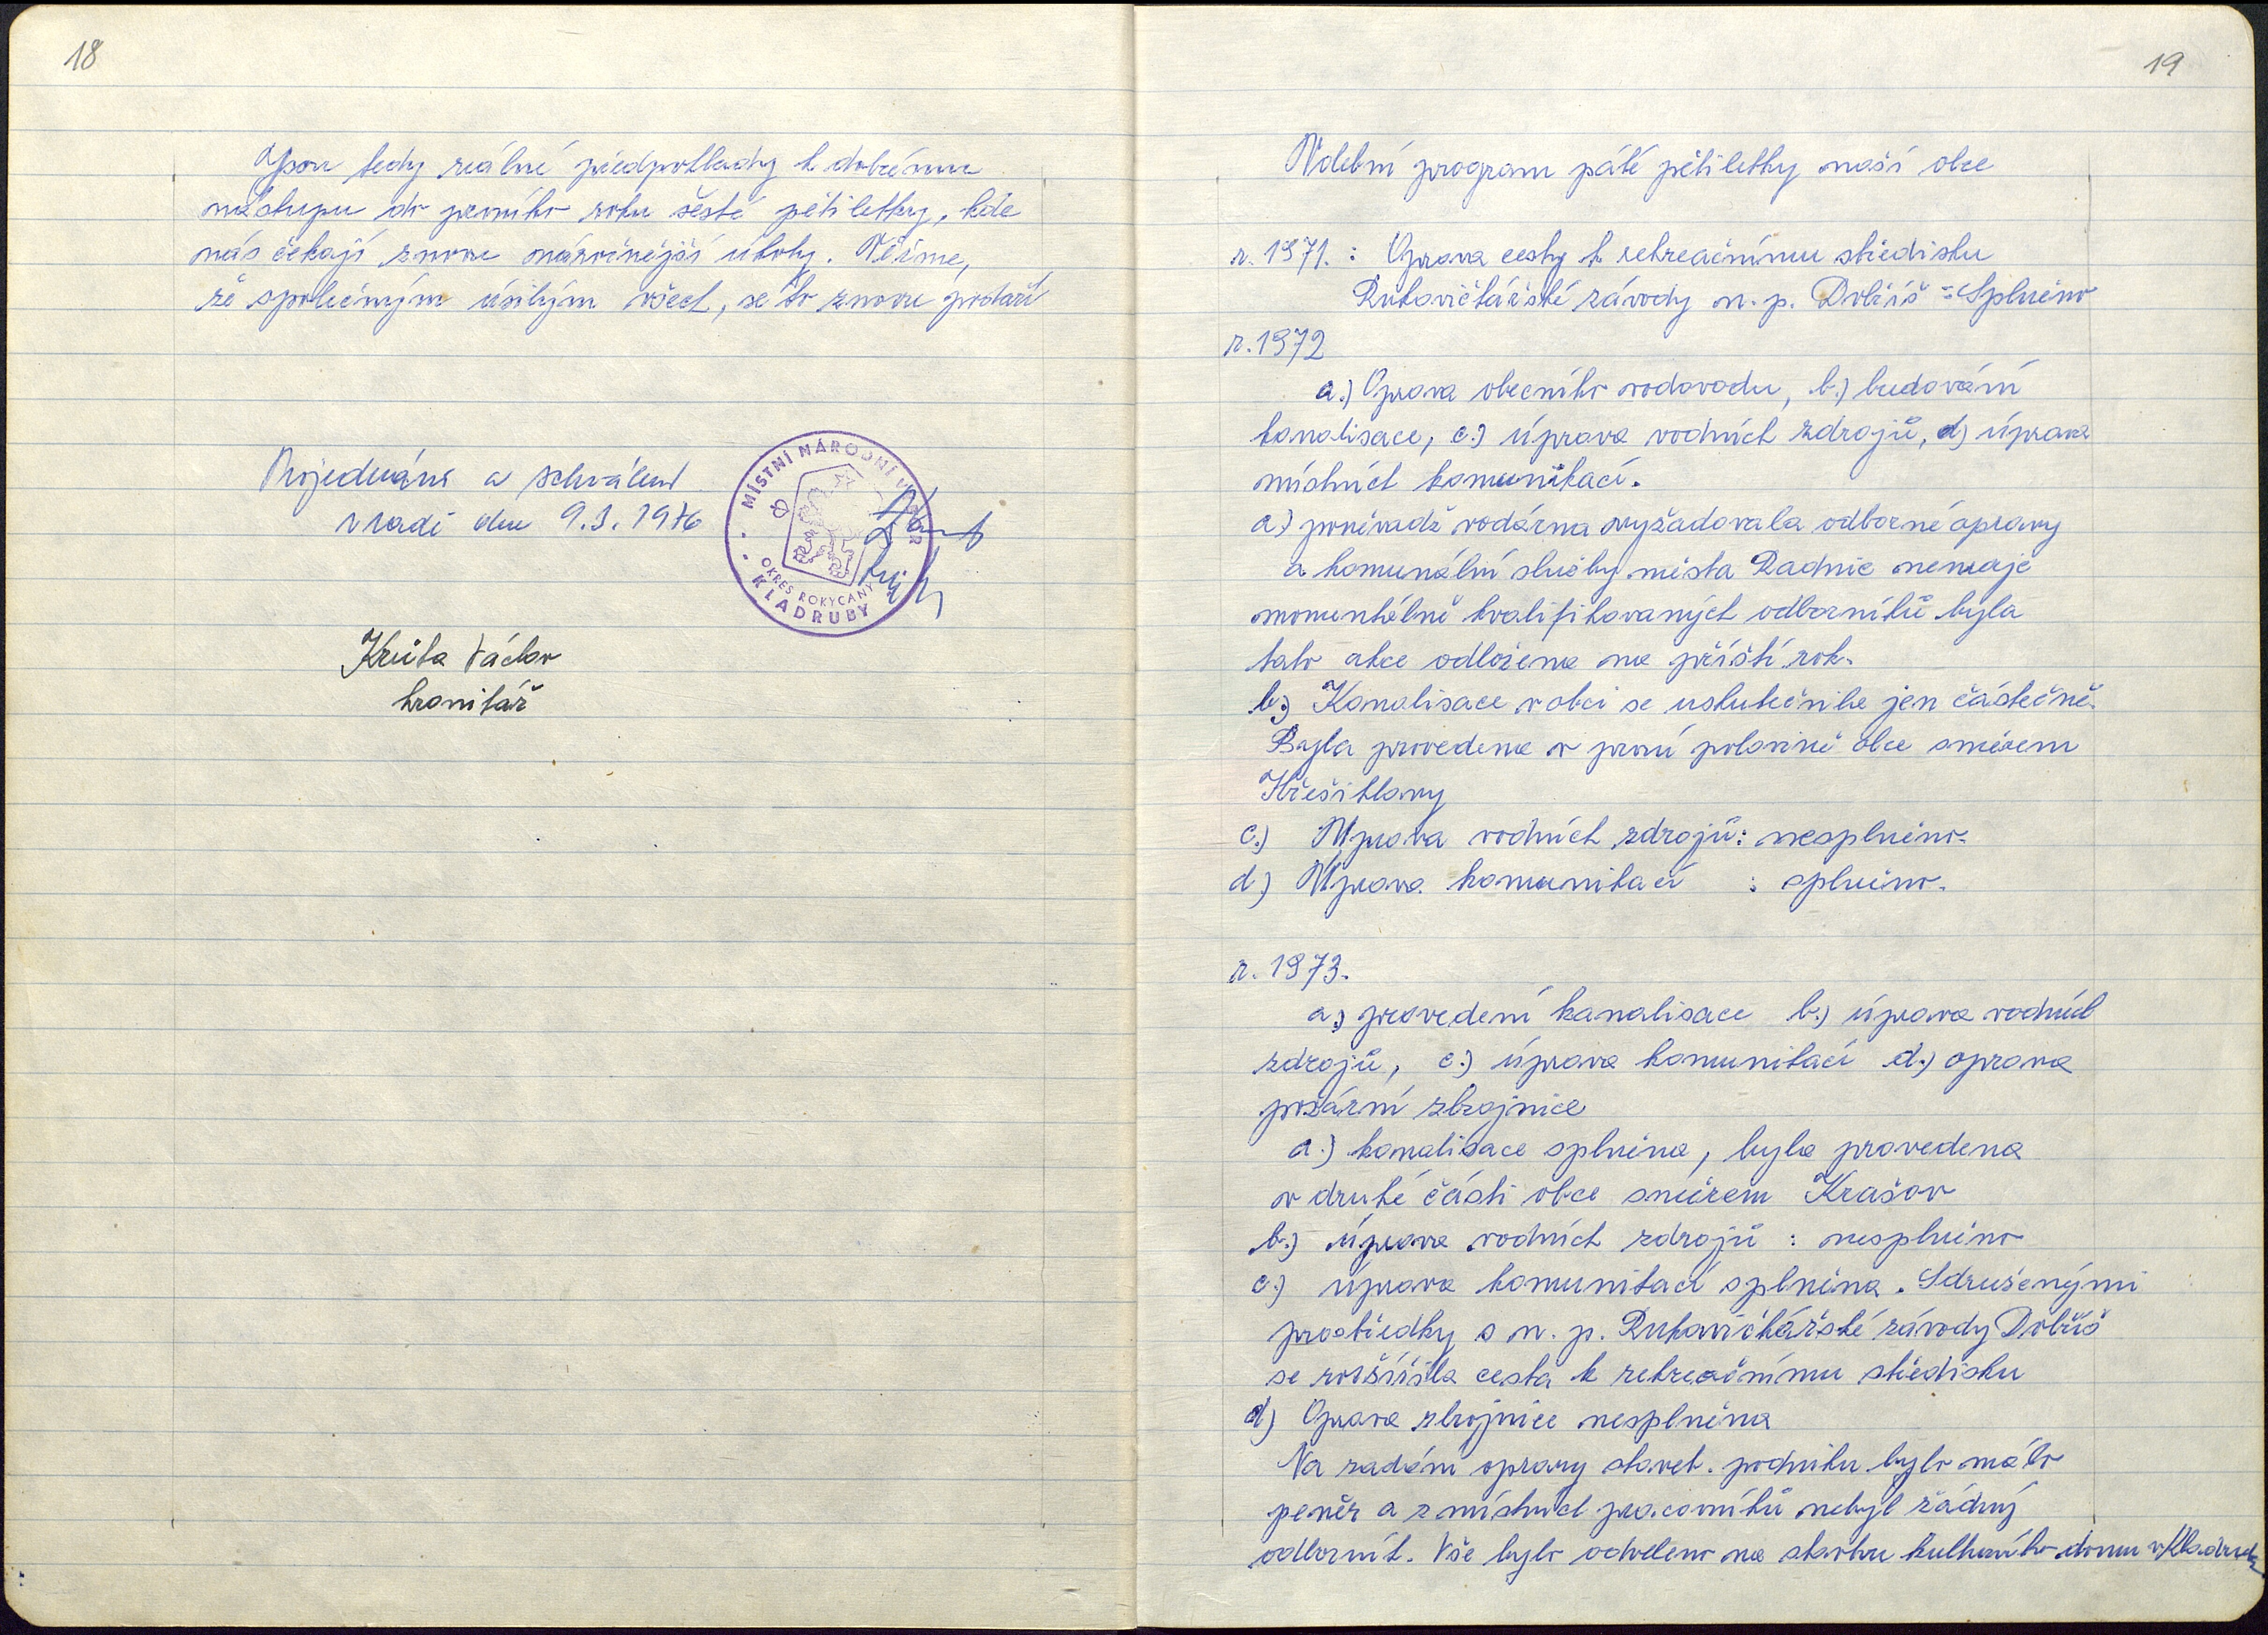 18
Jsou tedy reálné předpoklady k dobrému
nástupu do prvního roku šesté pětiletky, kde
nás čekají znovu náročnější úkoly. Věříme,
že společným úsilým všech, se to znovu podaří
Projednáno a schválено
v radě dne 9.3.1976
MÍSTNÍ NÁRODNÍ VÝBOR
OKRES ROKYCANY
KLADRUBY
Václav
kronikář
19
Volební program páté pětiletky naší obce
r. 1971. : Oprava cesty k rekreačnímu středisku
Rukavičkářské závody n. p. Dobříš = Splněno
r. 1972
a.) Oprava obecního vodovodu, b.) budování
kanalisace, c.) úprava vodních zdrojů, d) úprava
místních komunikací.
a) poněvadž vodárna vyžadovala odborné opravy
a komunální služby města Radnic nemaje
momentálně kvalifikovaných odborníků byla
tato akce odložena na příští rok.
b.) Kanalisace v obci se uskutečnila jen částečně.
Byla provedena v první polovině obce směrem
Hřešihlavy
c.) Úprava vodních zdrojů: nesplněno.
d) Úprava komunikací : splněno.
r. 1973.
a.) provedení kanalisace b.) úprava vodních
zdrojů, c.) úprava komunikací d.) oprava
požární zbrojnice
a.) kanalisace splněna, byla provedena
v druhé části obce směrem Krašov
b.) úprava vodních zdrojů : nesplněno
c.) úprava komunikací splněna. Sdruženými
prostředky s n. p. Rukavičkářské závody Dobříš
se rozšířila cesta k rekreačnímu středisku
d) Oprava zbrojnice nesplněna
Na zadání opravy staveb. podniku bylo málo
peněz a z místních pracovníků nebyl žádný
odborník. Vše bylo odveleno na stavbu kulturního domu v Kladrubech